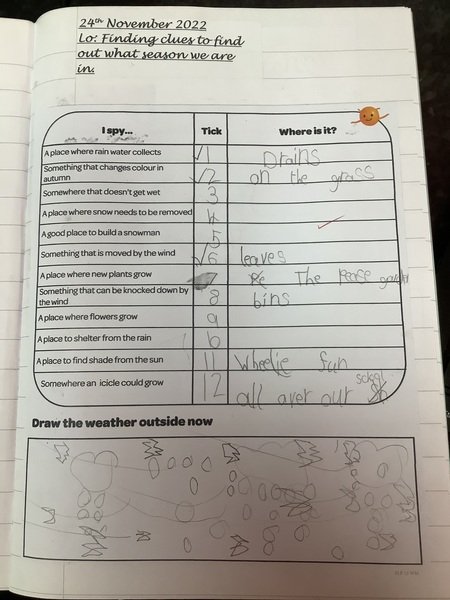 24th November 2022
Lo: Finding clues to find
out what season we are
in.
I spy... Tick Where is it?
A place where rain water collects 1 Drains
Something that changes colour in
autumn 2 on the grass
Somewhere that doesn't get wet 3
A place where snow needs to be removed 4
A good place to build a snowman 5
Something that is moved by the wind 6 leaves
A place where new plants grow The peace
Something that can be knocked down by
the wind 8 bins
A place where flowers grow 9
A place to shelter from the rain
A place to find shade from the sun 11 Wheelie fun
Somewhere an icicle could grow 12 all over our school
Draw the weather outside now